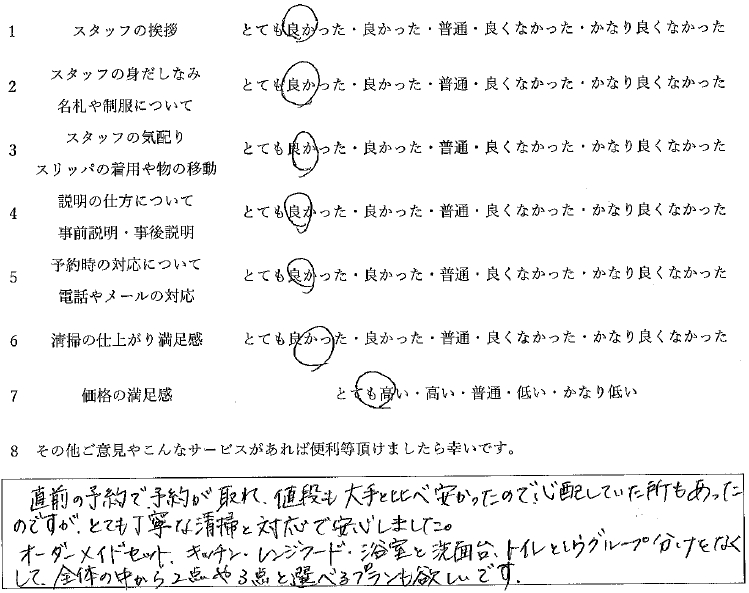 1 スタッフの挨拶 とても良かった・良かった・普通・良くなかった・かなり良くなかった
2 スタッフの身だしなみ 名札や制服について とても良かった・良かった・普通・良くなかった・かなり良くなかった
3 スタッフの気配り スリッパの着用や物の移動 とても良かった・良かった・普通・良くなかった・かなり良くなかった
4 説明の仕方について 事前説明・事後説明 とても良かった・良かった・普通・良くなかった・かなり良くなかった
5 予約時の対応について 電話やメールの対応 とても良かった・良かった・普通・良くなかった・かなり良くなかった
6 清掃の仕上がり満足感 とても良かった・良かった・普通・良くなかった・かなり良くなかった
7 価格の満足感 とても高い・高い・普通・低い・かなり低い
8 その他ご意見やこんなサービスがあれば便利等頂けましたら幸いです。
直前の予約で予約が取れ、値段も大手と比べ安かったので心配していた所もあった
のですが、とても丁寧な清掃と対応で安心しました。
オーダーメイドセット、キッチン・レンジフード・浴室と洗面台、トイレというグループ分けをなく
して、全体の中から2点や3点と選べるプランも欲しいです。